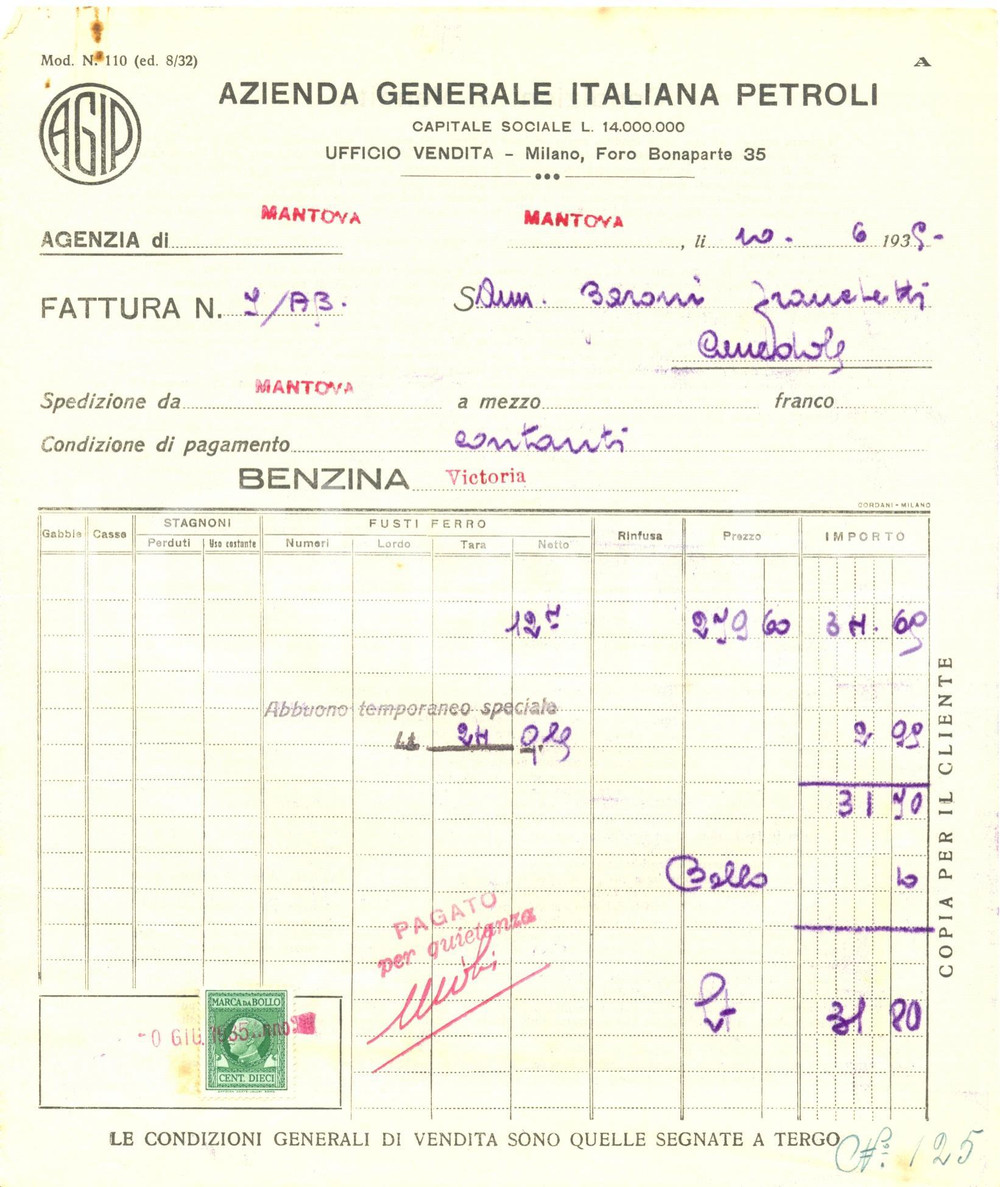 Mod. N. 110 (ed. 8/32)
A
AGIP
AZIENDA GENERALE ITALIANA PETROLI
CAPITALE SOCIALE L. 14.000.000
UFFICIO VENDITA – Milano, Foro Bonaparte 35
MANTOVA MANTOVA
AGENZIA di , li 10. 6 1935-
FATTURA N. /AB. S Amm. Baroni Franchetti
Canedole
MANTOVA
Spedizione da a mezzo franco
Condizione di pagamento contanti
BENZINA Victoria
CORDANI - MILANO
Gabbie Casse STAGNONI FUSTI FERRO Rinfusa Prezzo IMPORTO
Perduti Uso costante Numeri Lordo Tara Netto
279 60 34.69
Abbuono temporaneo speciale
Lt. 2 99
31 70
Bollo 10
PAGATO
per quietanza
31 80
MARCA DA BOLLO
0 GIU. 1935
CENT. DIECI
COPIA PER IL CLIENTE
LE CONDIZIONI GENERALI DI VENDITA SONO QUELLE SEGNATE A TERGO
N° 125